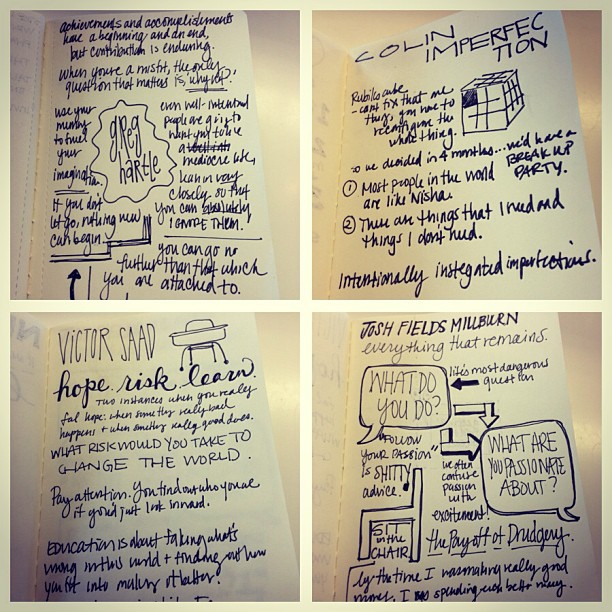 achievements and accomplishments
have a beginning and an end,
but contribution is enduring.
when you're a misfit, the only
question that matters is, "why not?"
use your
memory
to fuel
your
imagination.
If you don't
let go, nothing new
can begin.
greg
hartle
even well-intentioned
people are going to
want you to live
a
mediocre life,
lean in very
closely so that
you can absolutely
IGNORE THEM!
you can go no
further than that which
you are attached to.
COLIN
IMPERFEC
TION
Rubiks cube
- cant fix that one
thing, you have to
reconfigure the
whole thing.
so we decided in 4 months... we'd have a
BREAK UP
PARTY.
① Most people in the world
are like Nisha.
② There are things that I need and
things I don't need.
Intentionally instegated imperfections.
VICTOR SAAD
hope. risk. learn.
Two instances when you really
feel hope: when somethg really bad
happens + when somethg really good does.
WHAT RISK WOULD YOU TAKE TO
CHANGE THE WORLD.
Pay attention. You find out who you are
if you'd just look inward.
Education is about taking what's
wrong in this world + finding out how
you fit into making it better.
JOSH FIELDS MILLBURN
everything that remains.
WHAT DO
YOU DO?
life's most dangerous
question
"FOLLOW
YOUR PASSION"
is SHITTY
advice.
we often
confuse
passion
with
excitement!
WHAT ARE
YOU PASSIONATE
ABOUT?
SIT
in the
CHAIR
the Payoff of Drudgery.
by the time I was making really good
money, I was spending even better money.